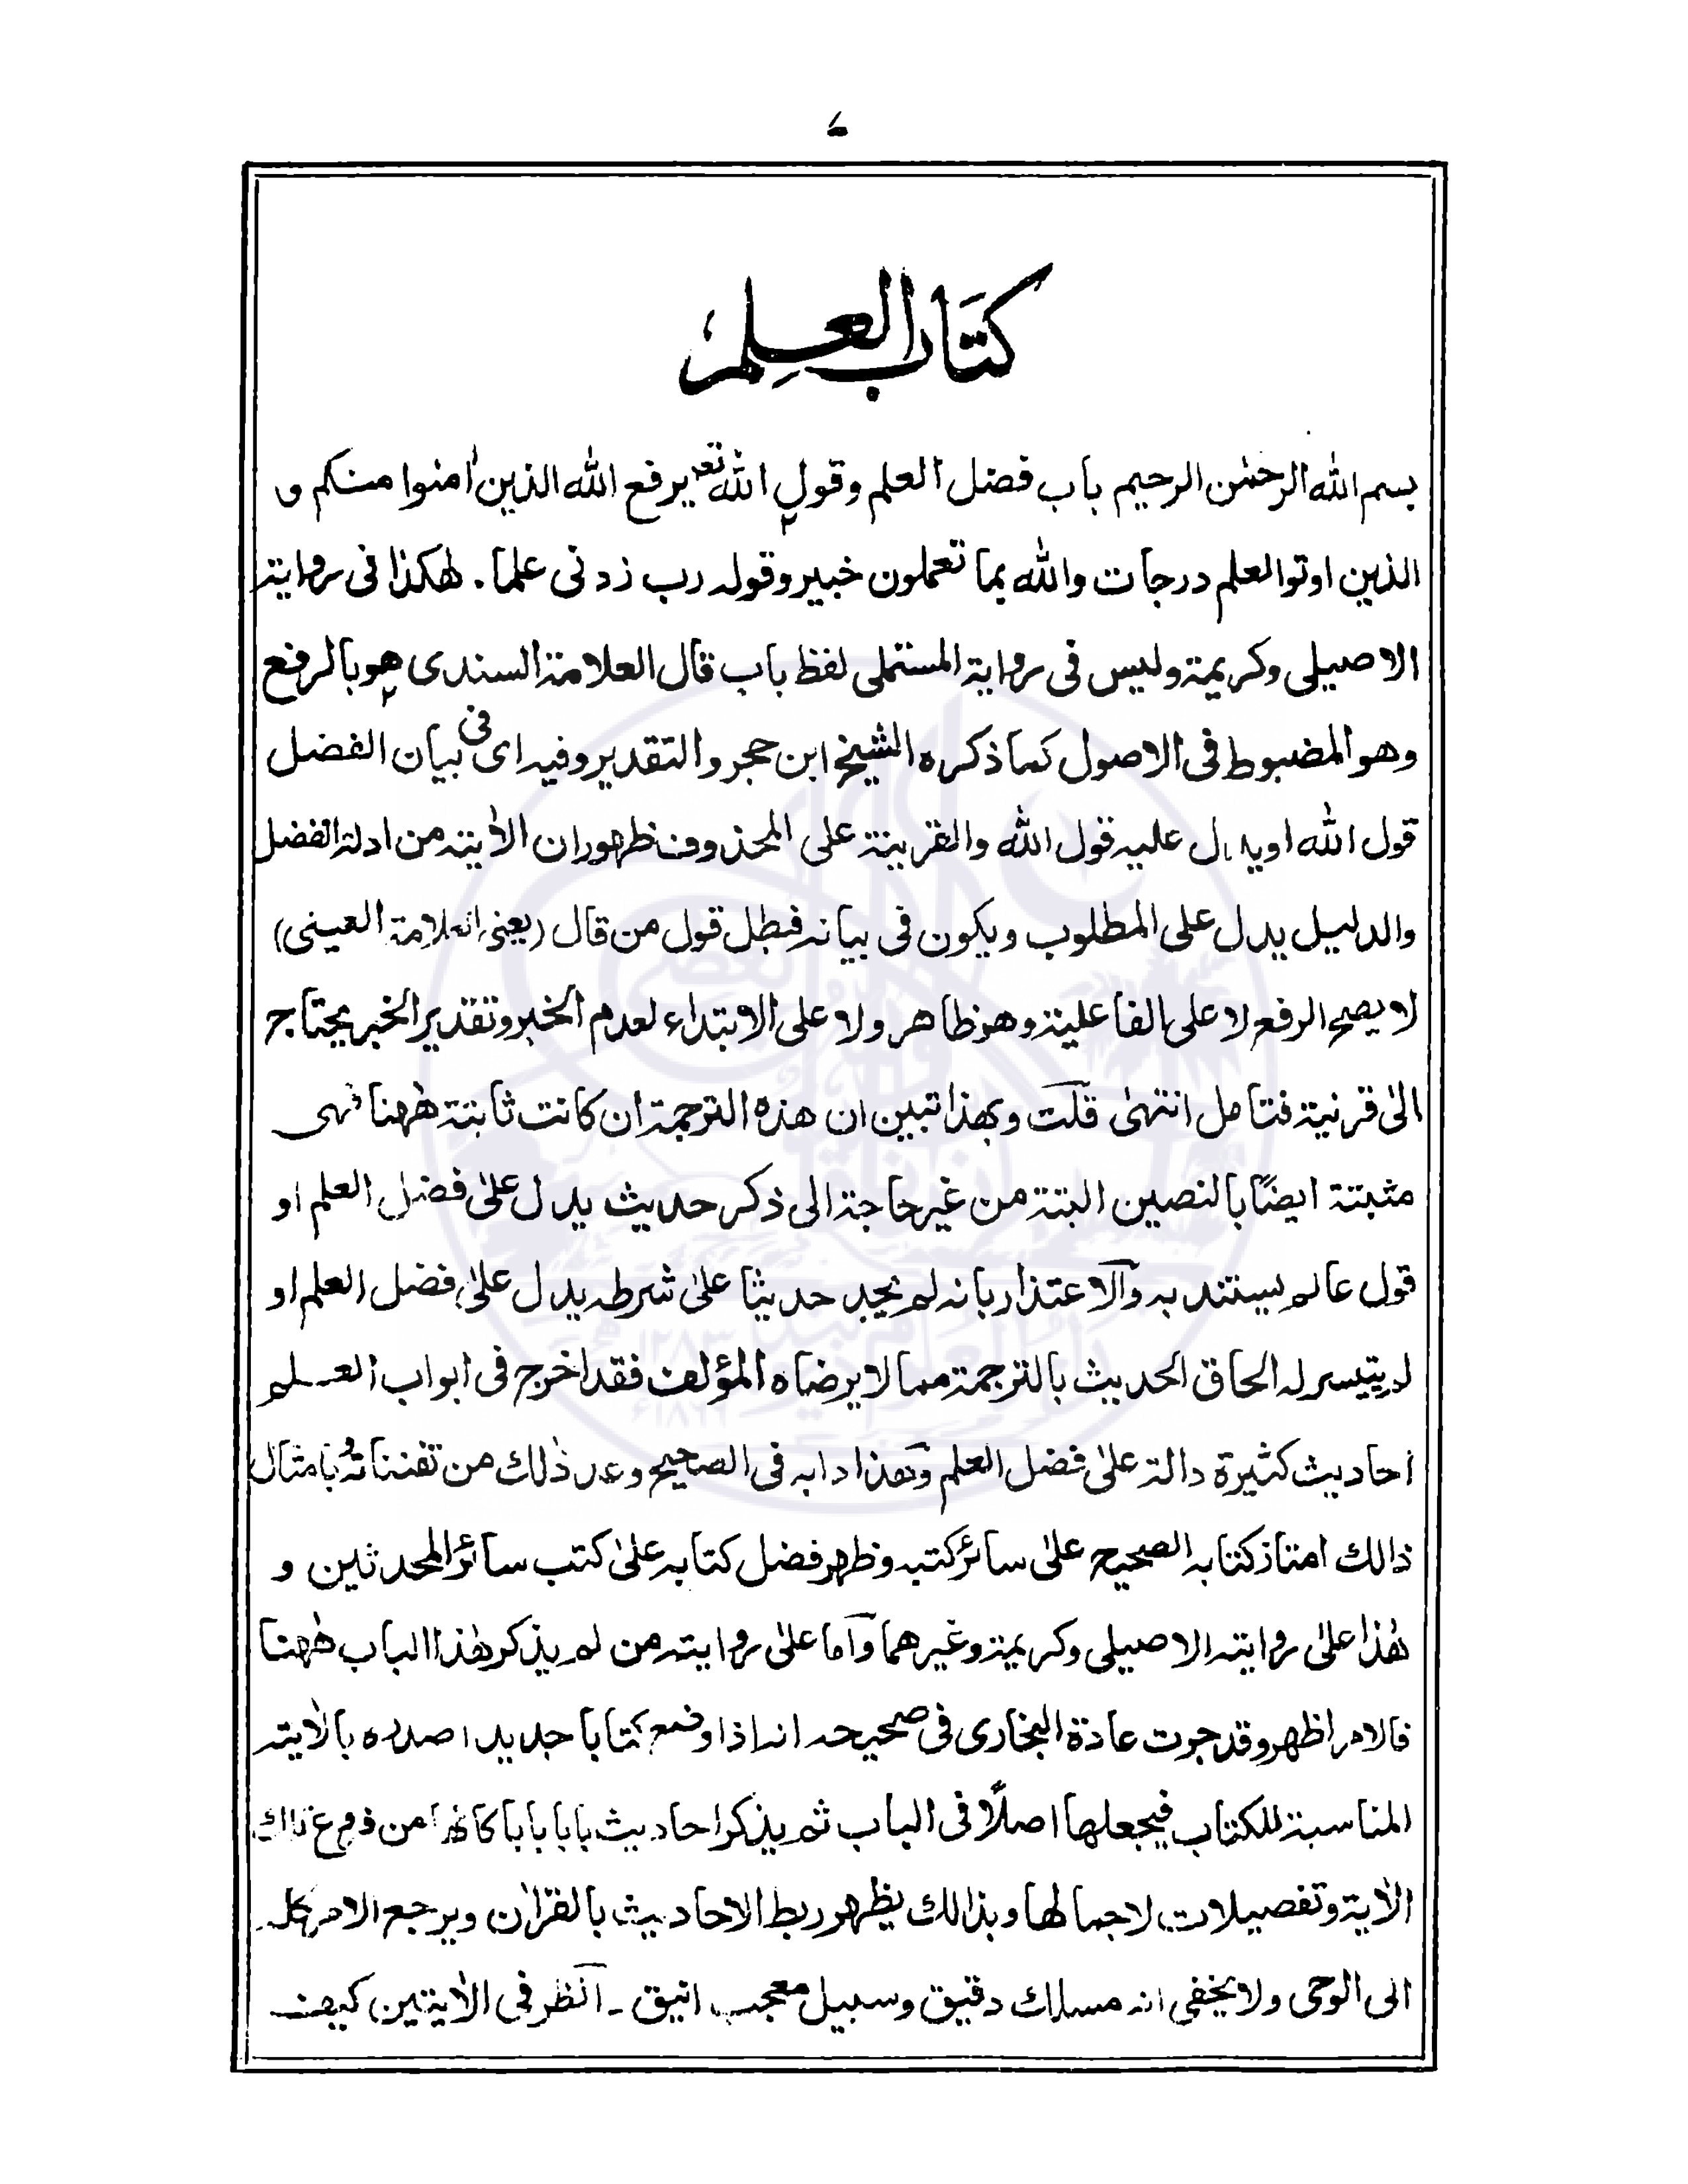 كتاب العلم
بسم الله الرحمٰن الرحيم باب فضل العلم وقول الله تعـ يرفع الله الذين اٰمنوا منكم و
الذين اوتوا العلم درجات والله بما تعملون خبير وقوله رب زدنى علما. هٰكذا فى رواية
الاصيلى وكريمة وليس فى رواية المستملى لفظ باب قال العلامة السندى هو بالرفع
وهو المضبوط فى الاصول كما ذكره الشيخ ابن حجر والتقدير وفيه اى فى بيان الفضل
قول الله او يدل عليه قول الله والقرينة على المحذوف ظهور ان الاٰية من ادلة الفضل
والدليل يدل على المطلوب ويكون فى بيانه فبطل قول من قال (يعنى العلامة العينى)
لا يصح الرفع لا على الفاعلية وهو ظاهر ولا على الابتداء لعدم الخبر وتقدير الخبر يحتاج
الىٰ قرنية فتامل انتهىٰ قلت وبهذا تبين ان هذه الترجمة ان كانت ثابتة هٰهنا فهى
مثبتة ايضًا بالنصين البتة من غير حاجة الى ذكر حديث يدل علىٰ فضل العلم او
قول عالم يستند به والاعتذار بانه لم يجد حديثا علىٰ شرطه يدل علىٰ فضل العلم او
لم يتيسر له الحاق الحديث بالترجمة مما لا يرضاه المؤلف فقد اخرج فى ابواب العلم
احاديث كثيرة دالة علىٰ فضل العلم وهذا دابه فى الصحيح وعد ذٰلك من تفنناته وبامثال
ذالك امتاز كتابه الصحيح علىٰ سائر كتبه وظهر فضل كتابه علىٰ كتب سائر المحدثين و
هٰذا علىٰ رواية الاصيلى وكريمة وغيرهما واما علىٰ رواية من لم يذكر هٰذا الباب هٰهنا
فالامر اظهر وقد جرت عادة البخارى فى صحيحه انه اذا وضع كتابا جديدا صدره بالاٰية
المناسبة للكتاب فيجعلها اصلًا فى الباب ثم يذكر احاديث بابا بابا كانها من فروع تلك
الاٰية وتفصيلات لاجمالها وبذالك يظهر ربط الاحاديث بالقراٰن ويرجع الامر كله
الى الوحى ولا يخفى انه مسلك دقيق وسبيل معجب انيق ـ انظر فى الاٰيتين كيف